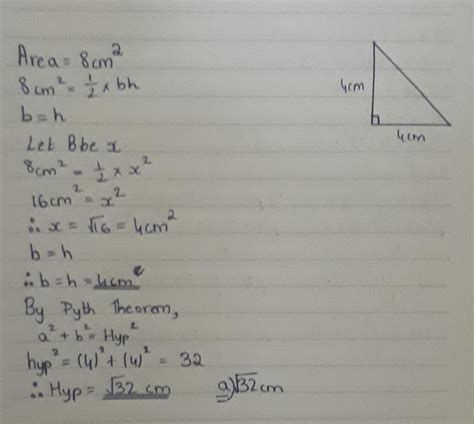 Area = 8cm²
8cm² = 1/2 × bh
b = h
Let B be x
8cm² = 1/2 × x²
16cm² = x²
∴ x = √16 = 4cm²
b = h
∴ b = h = 4cm
By Pyth Theorem,
a² + b² = Hyp²
hyp² = (4)² + (4)² = 32
∴ Hyp = √32 cm a) √32 cm
4cm
4cm